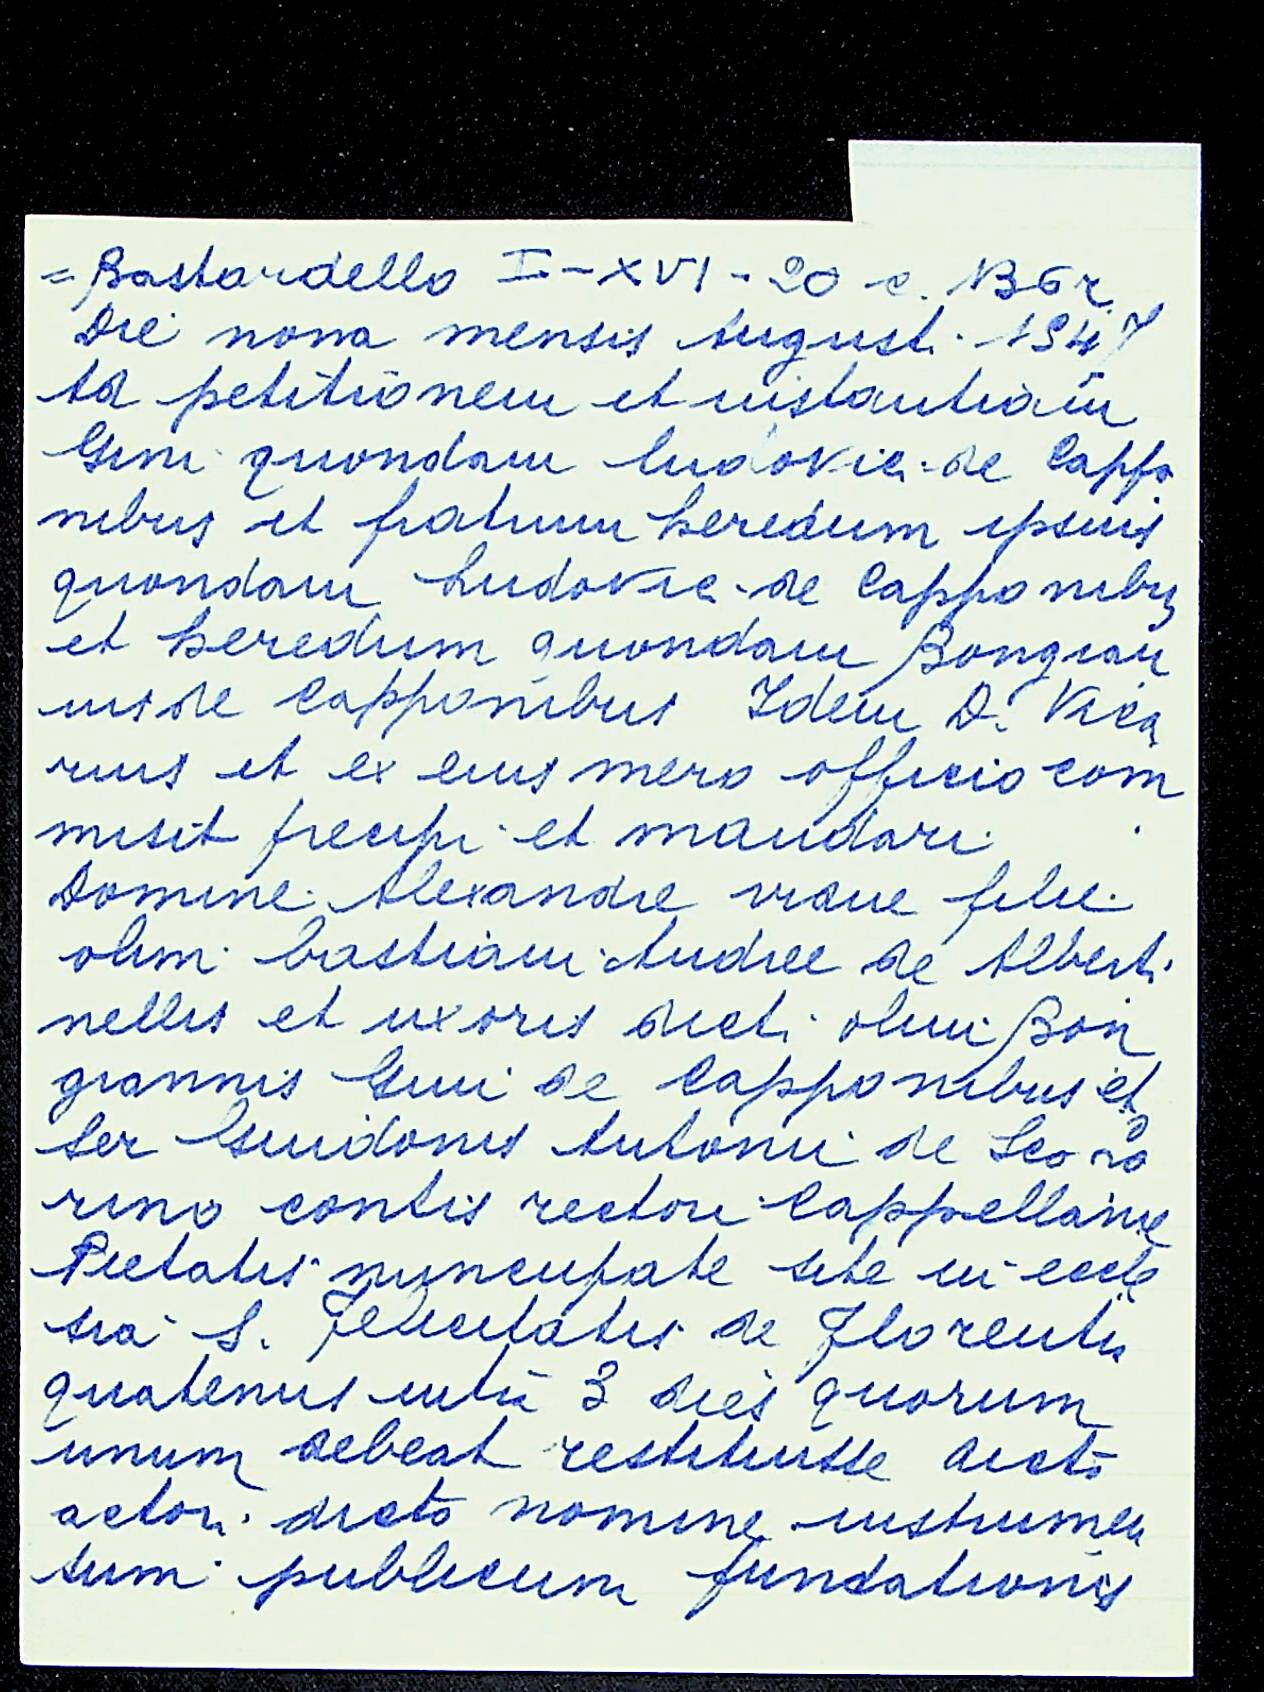 = Bastardello I-XVI-20 c. 136r
Die nona mensis Augusti 1547
Ad petitionem et instantiam
Gini quondam Ludovici de Cappo
nibus et fratrum heredum ipsius
quondam Ludovici de Capponibus
et heredum quondam Bongian
nis de Capponibus Idem D. Vica
rius et ex eius mero officio com
misit precipi et mandari
Domine Alexandre vidue filie
olim bastiani Andree de Alberti
nellis et uxoris dicti olim Bon
giannis Gini de Capponibus et
Ser Guidonis Antonii de
rino contis rectori Cappellanie
Pietatis nuncupate site in eccle
sia S. Felicitatis de Florentia
quatenus infra 3 dies quorum
unum debeat restituisse dicto
actori dicto nomine instrumen
tum publicum fundationis